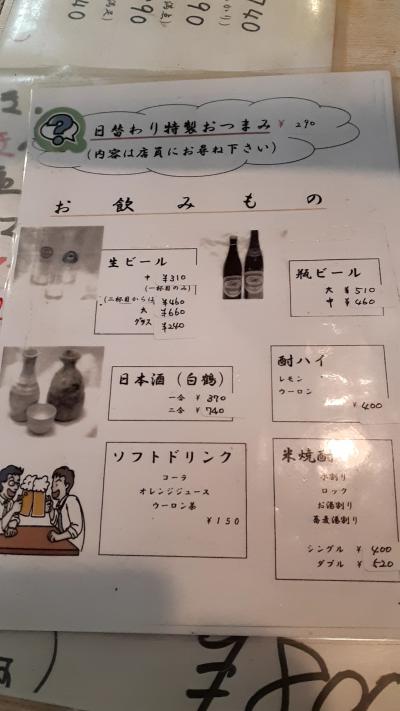 740
かり)
790
790
740
日替わり特製おつまみ ¥ 290
(内容は店員にお尋ね下さい)
お飲みもの
生ビール
中 ¥310
(一杯目のみ)
(二杯目からは ¥460
大 ¥660
グラス ¥240
瓶ビール
大 ¥510
中 ¥460
日本酒(白鶴)
一合 ¥ 370
二合 ¥ 740
酎ハイ
レモン
ウーロン
¥400
ソフトドリンク
コーラ
オレンジジュース
ウーロン茶
¥150
米焼酎
水割り
ロック
お湯割り
蕎麦湯割り
シングル ¥ 400
ダブル ¥ 520
¥800